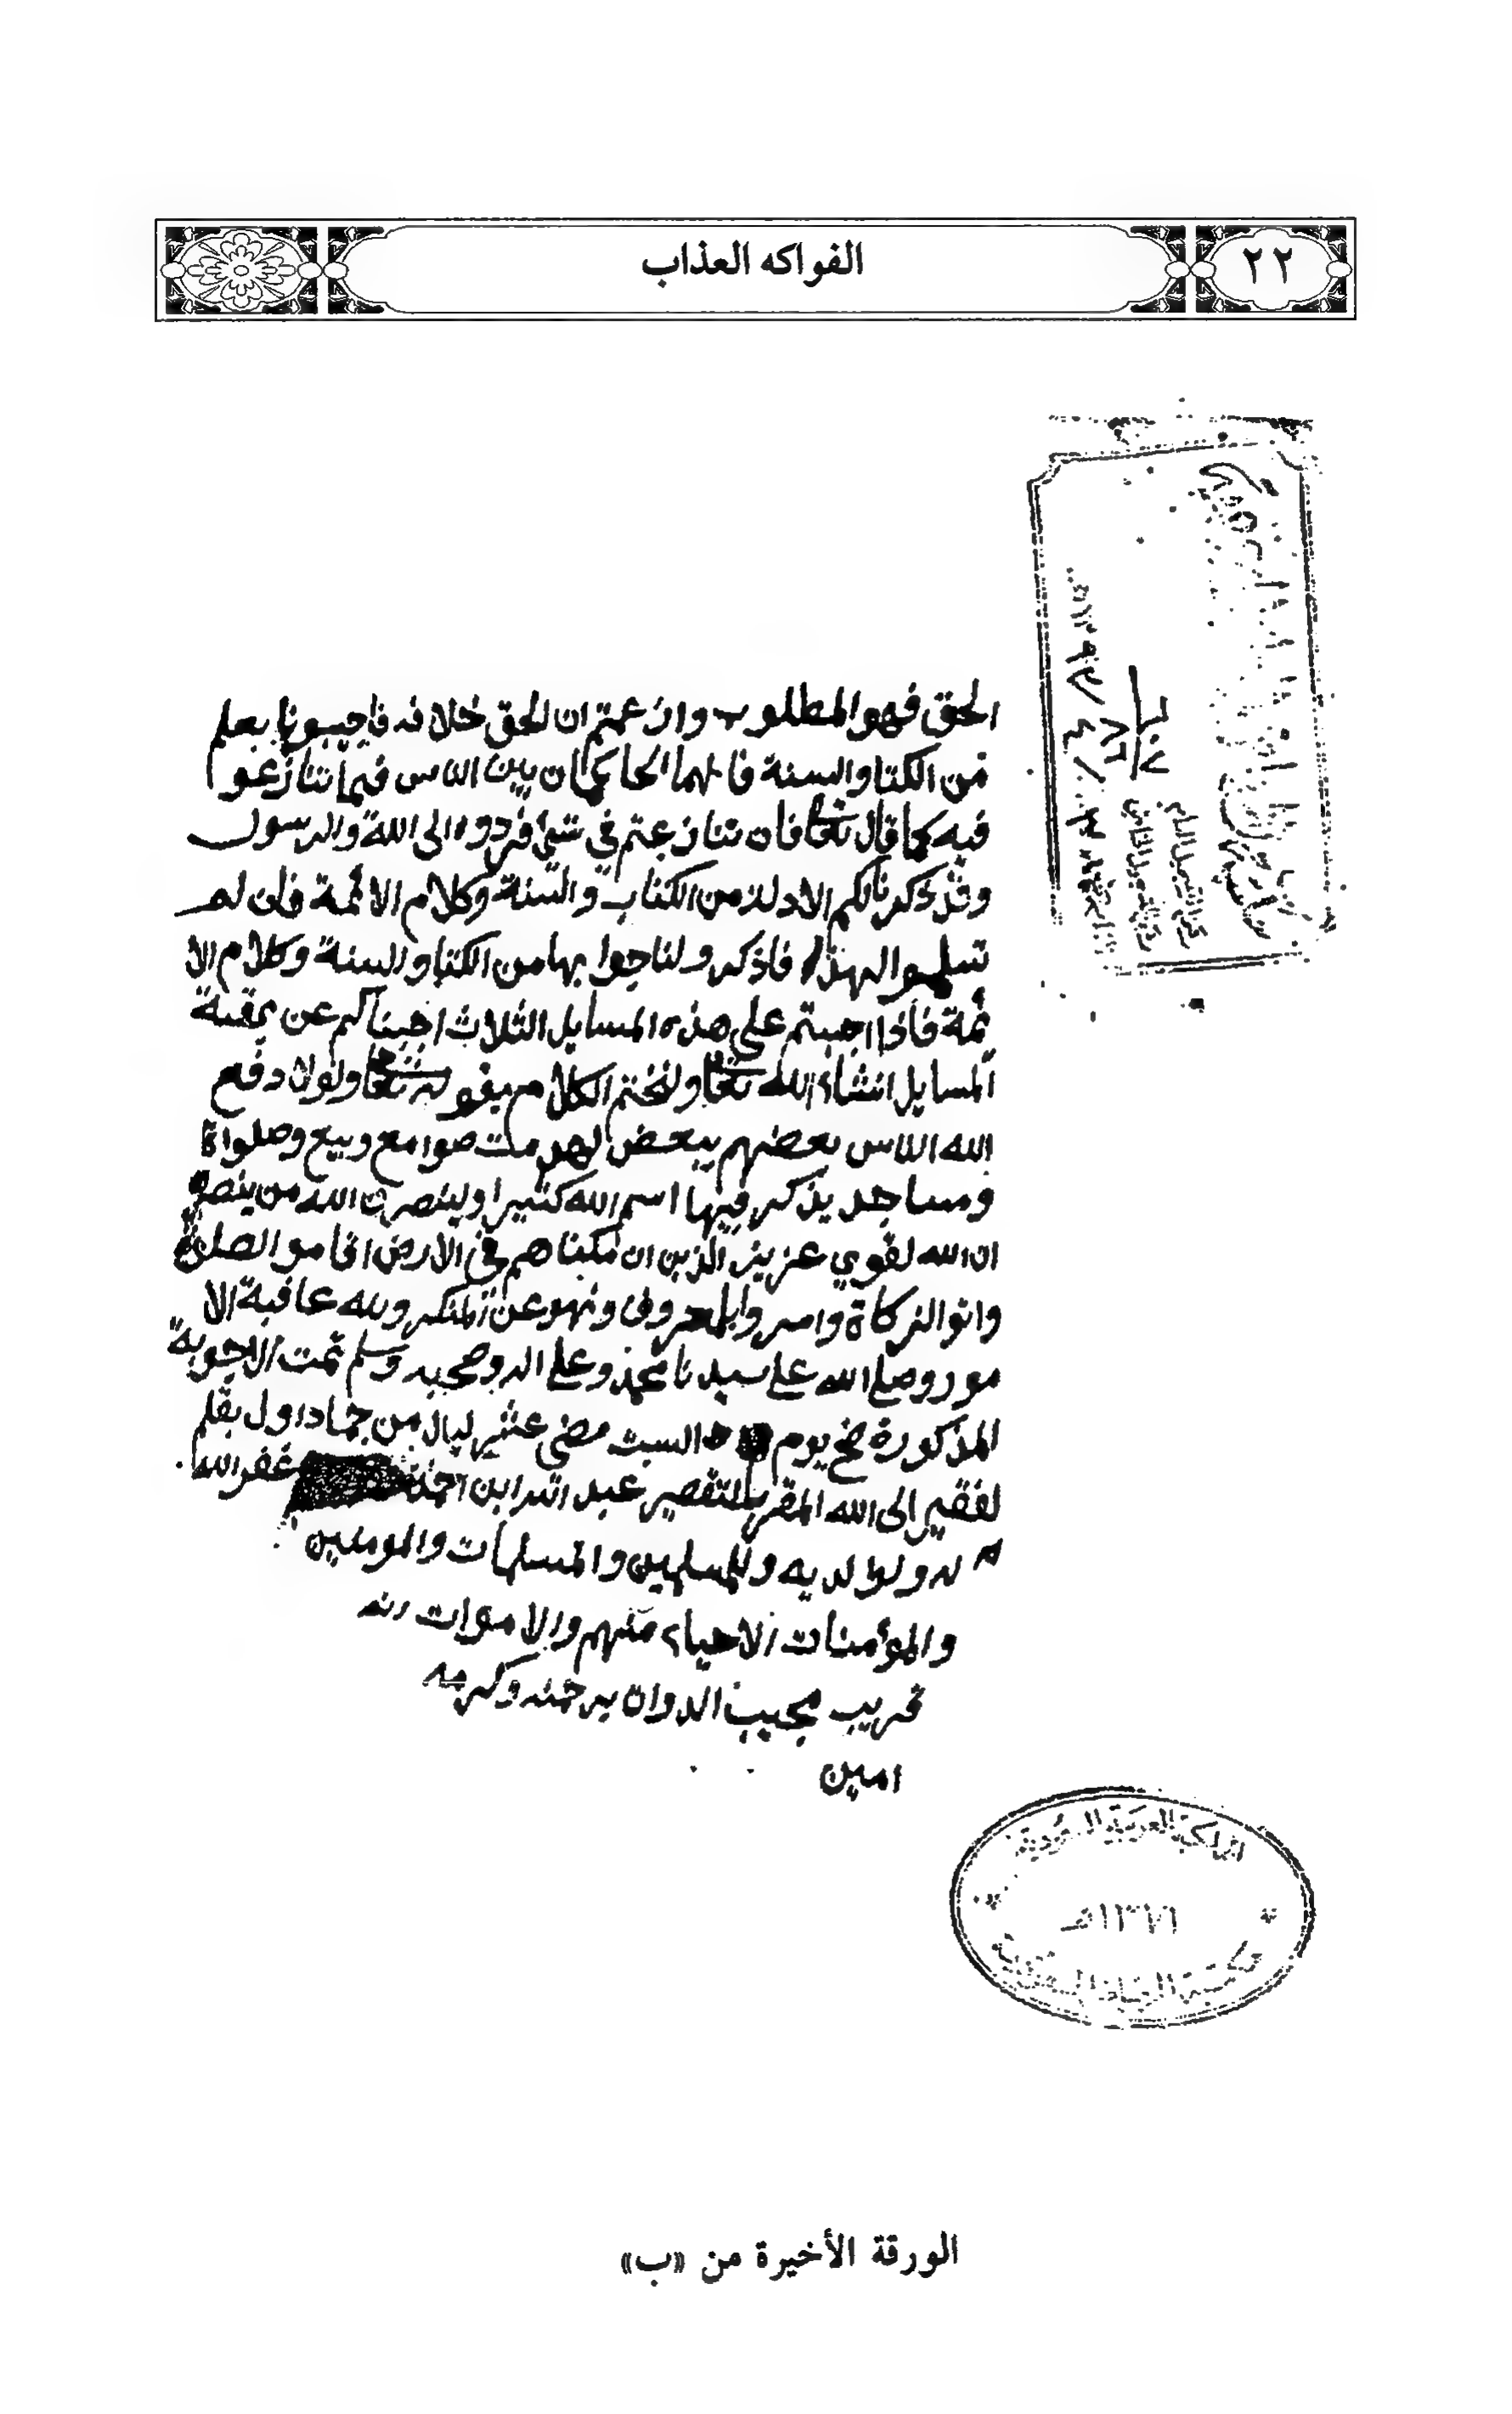 ٢٢
الفواكه العذاب
الحق فهو المطلوب وان زعمتم ان الحق خلافه فاجيبونا بعلم
من الكتاب والسنة فانهما الحاكمان بين الناس فيما تنازعوا
فيه كما قال تعالى فان تنازعتم في شيء فردوه الى الله والرسول
وقد ذكرنا لكم الادلة من الكتاب والسنة وكلام الائمة فان لم
تسلموا لهذا فاذكرو لنا جوابها من الكتاب والسنة وكلام الا
ئمة فاذا اجبتم على هذه المسايل الثلاث اجبناكم عن بقية
المسايل انشاء الله تعالى ولنختم الكلام بقوله تعالى ولولا دفع
الله الناس بعضهم ببعض لهدمت صوامع وبيع وصلواة
ومساجد يذكر فيها اسم الله كثيرا ولينصرن الله من ينصره
ان الله لقوي عزيز الذين ان مكناهم في الارض اقامو الصلوة
واتو الزكاة وامرو بالمعروف ونهو عن المنكر ولله عاقبة الا
مور وصلى الله على سيدنا محمد وعلى اله وصحبه وسلم تمت الاجوبة
المذكورة ضح يوم السبت مضى عشر ليال من جماد اول بقلم
لفقير الى الله المقر بالتقصير عبد الله ابن احمد غفر الله
له ولوالديه وللمسلمين والمسلمات والمومنين
والمؤمنات الاحياء منهم والاموات انه
قريب مجيب الدواة برحمته وكرمه
امين
المملكة العربية السعودية
١٣٧١هـ
الورقة الأخيرة من «ب»